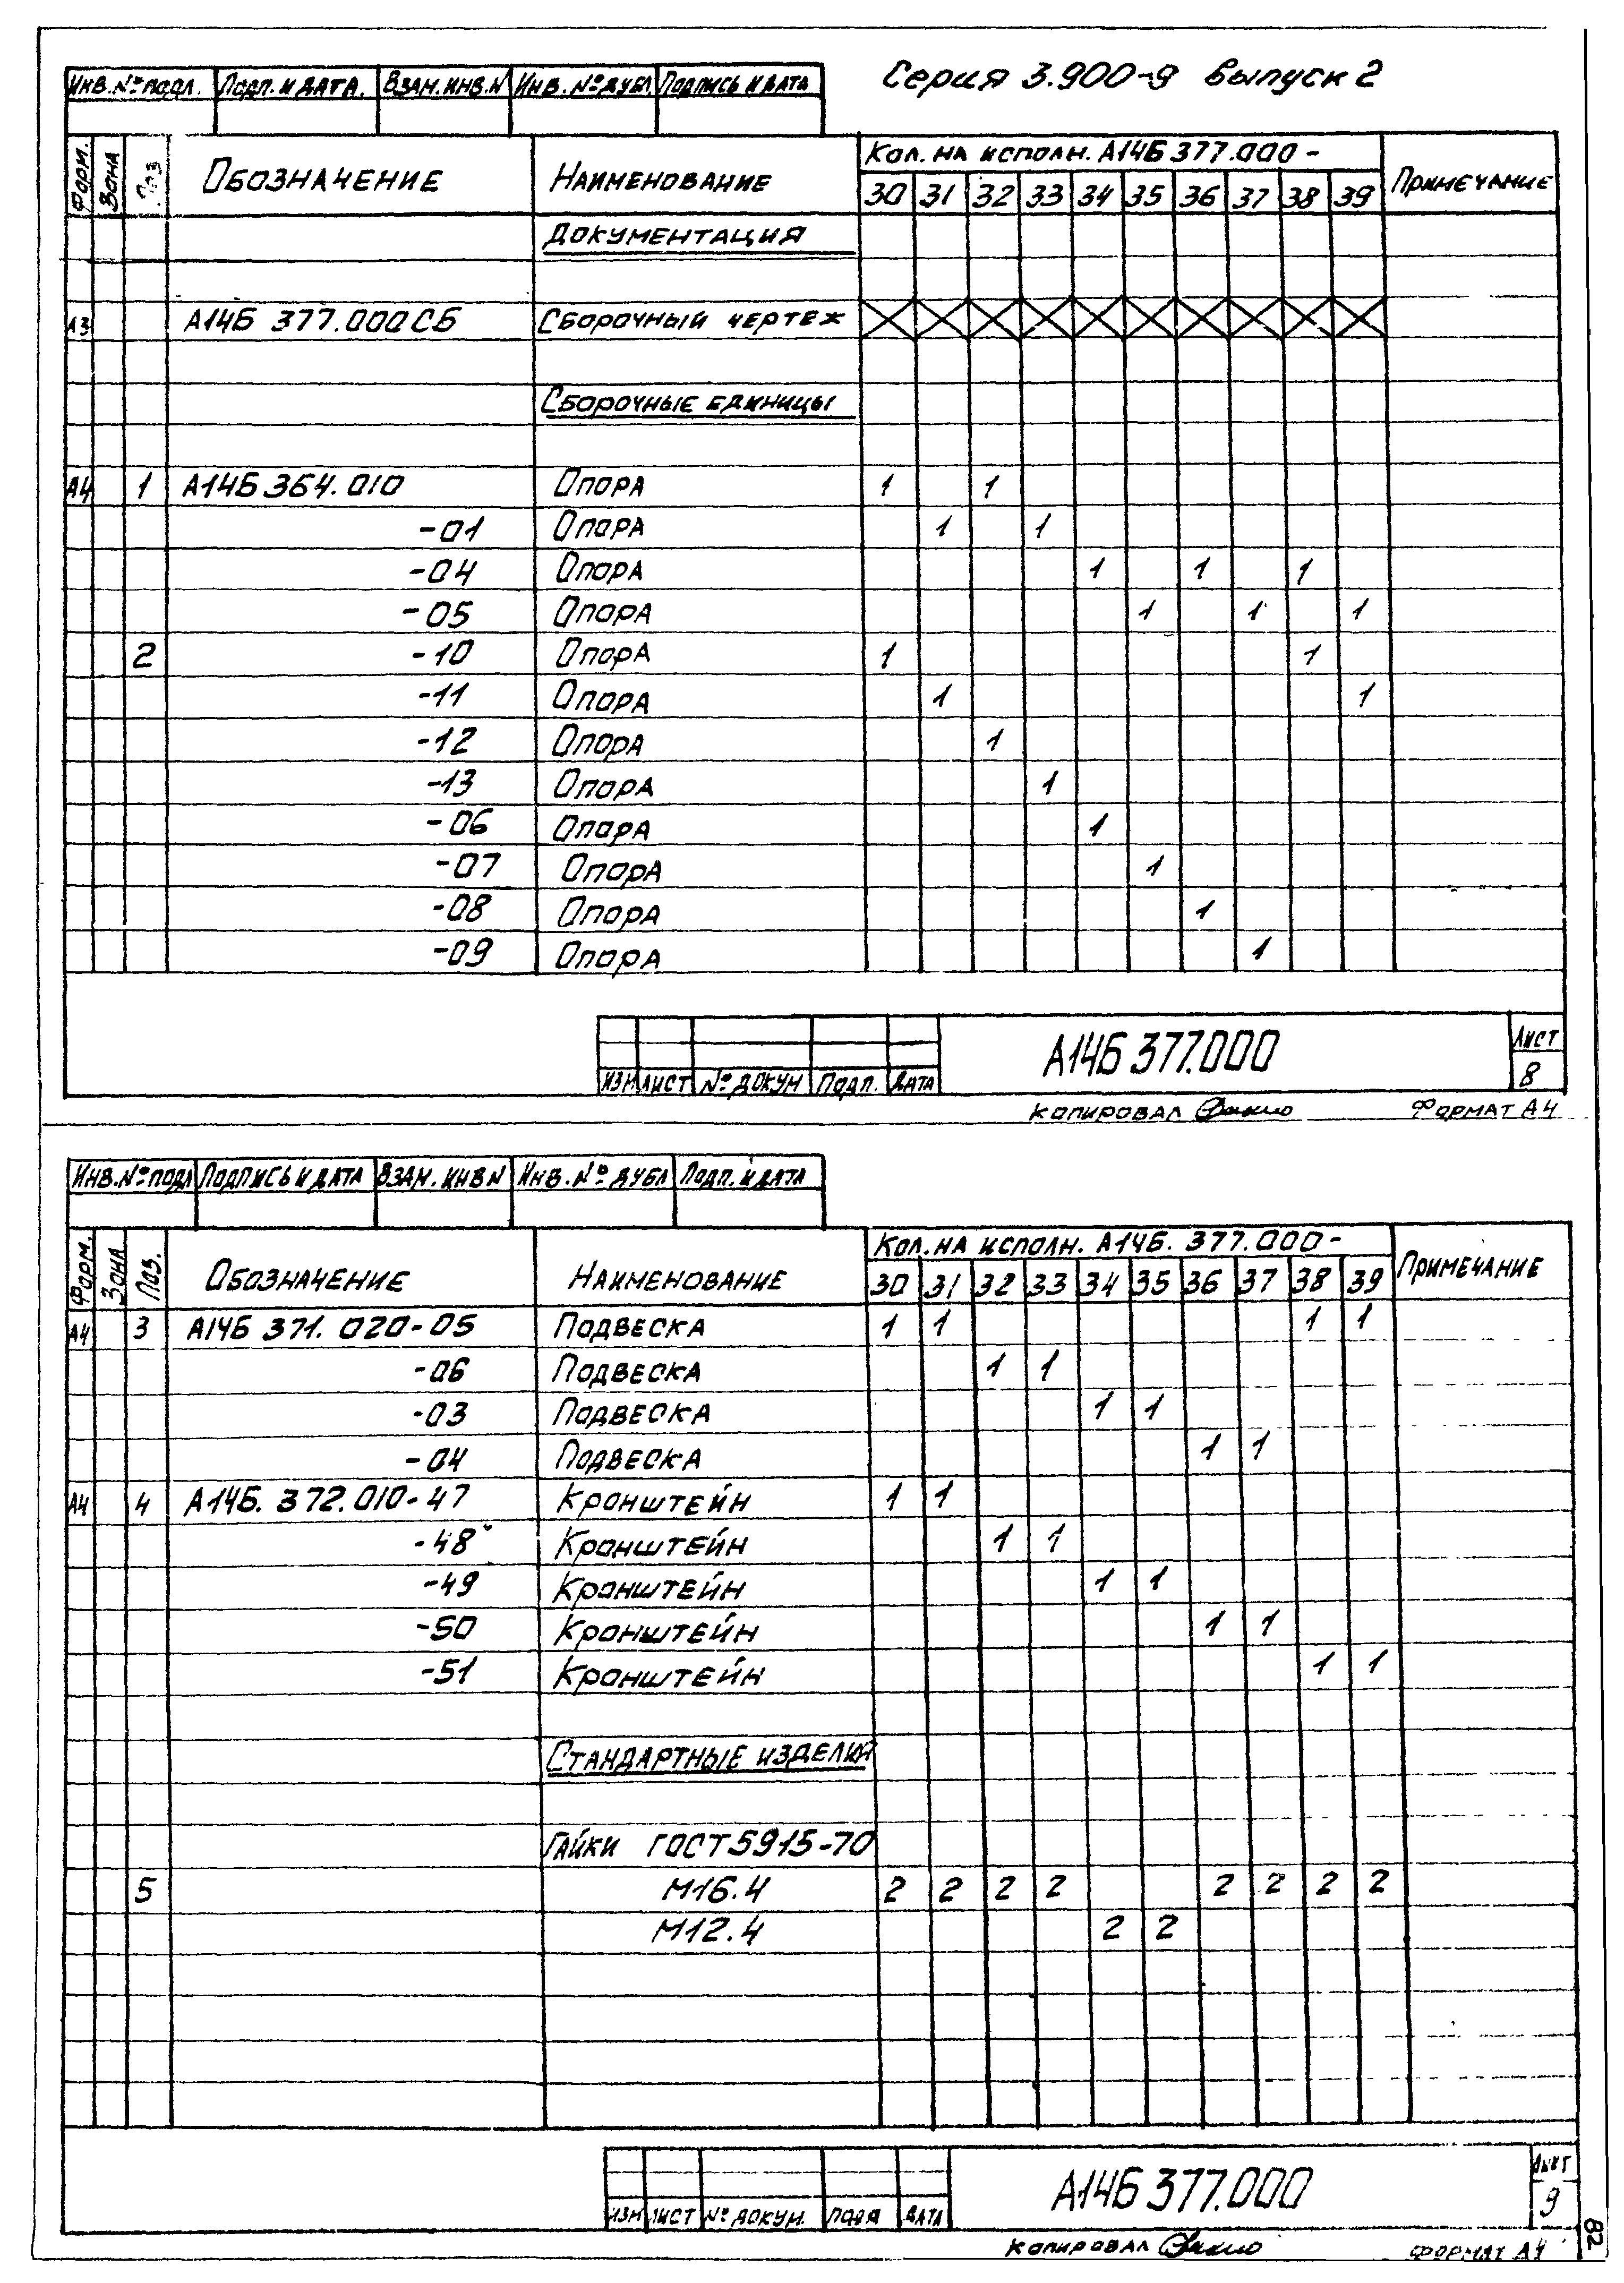 Серия 3.900-9 выпуск 2
Инв.№подл. Подп. и дата. Взам.инв.N Инв.№дубл Подпись и дата
Форм. Зона Поз Обозначение Наименование Кол. на исполн. А14Б377.000- Примечание
30 31 32 33 34 35 36 37 38 39
Документация
А3 А14Б 377.000СБ Сборочный чертеж
Сборочные единицы
А4 1 А14Б364.010 Опора 1 1
-01 Опора 1 1
-04 Опора 1 1 1
-05 Опора 1 1 1
2 -10 Опора 1 1
-11 Опора 1 1
-12 Опора 1
-13 Опора 1
-06 Опора 1
-07 Опора 1
-08 Опора 1
-09 Опора 1
А14Б377.000
Лист
8
Изм Лист №докум Подп. Дата
Копировал Формат А4
Инв.№подл Подпись и дата Взам.инвN Инв.№дубл Подп. и дата
Форм. Зона Поз. Обозначение Наименование Кол. на исполн. А14Б. 377.000- Примечание
30 31 32 33 34 35 36 37 38 39
А4 3 А14Б 371.020-05 Подвеска 1 1 1 1
-06 Подвеска 1 1
-03 Подвеска 1 1
-04 Подвеска 1 1
А4 4 А14Б. 372.010-47 Кронштейн 1 1
-48 Кронштейн 1 1
-49 Кронштейн 1 1
-50 Кронштейн 1 1
-51 Кронштейн 1 1
Стандартные изделия
Гайки ГОСТ5915-70
5 М16.4 2 2 2 2 2 2 2 2
М12.4 2 2
А14Б377.000
Лист
9
Изм Лист №докум. Подп Дата
Копировал Формат А4
82